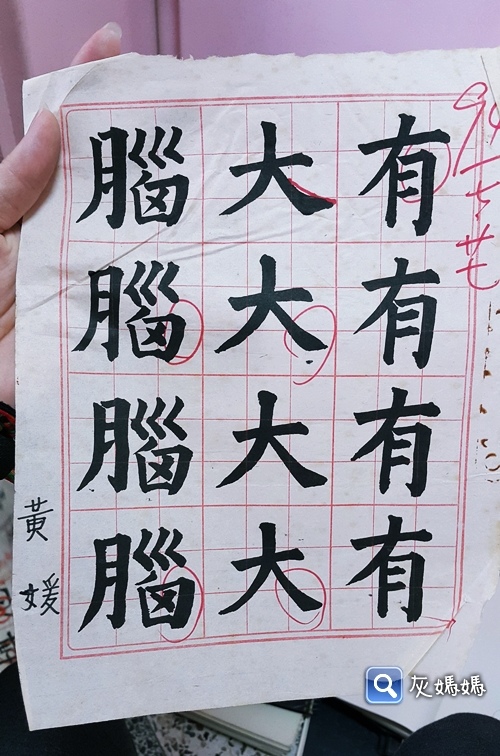 有有有有
大大大大
腦腦腦腦
黃媛
灰媽媽